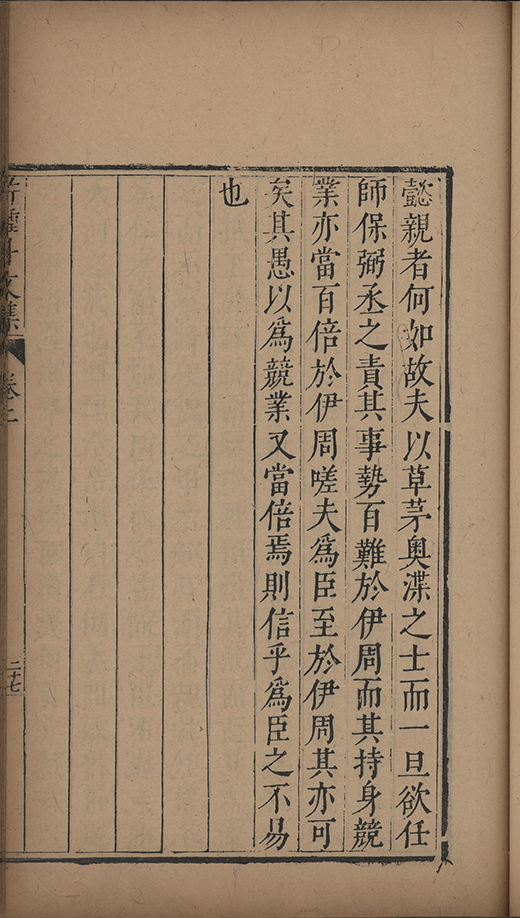 懿親者何如故夫以草茅奥渫之士而一旦欲任
師保弼丞之責其事勢百難於伊周而其持身競
業亦當百倍於伊周嗟夫爲臣至於伊周其亦可
矣其愚以爲競業又當倍焉則信乎爲臣之不易
也
文集
卷二
二十七